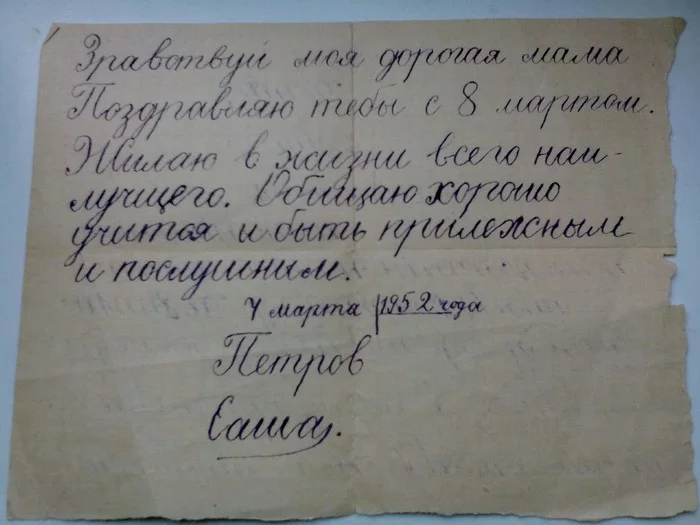 Зравствуй моя дорогая мама
Поздравляю тебы с 8 мартом.
Жилаю в жизни всего наи-
лучщего. Обищаю хорошо
учится и быть прилежным
и послушним.
7 марта 1952 года
Петров
Саша.